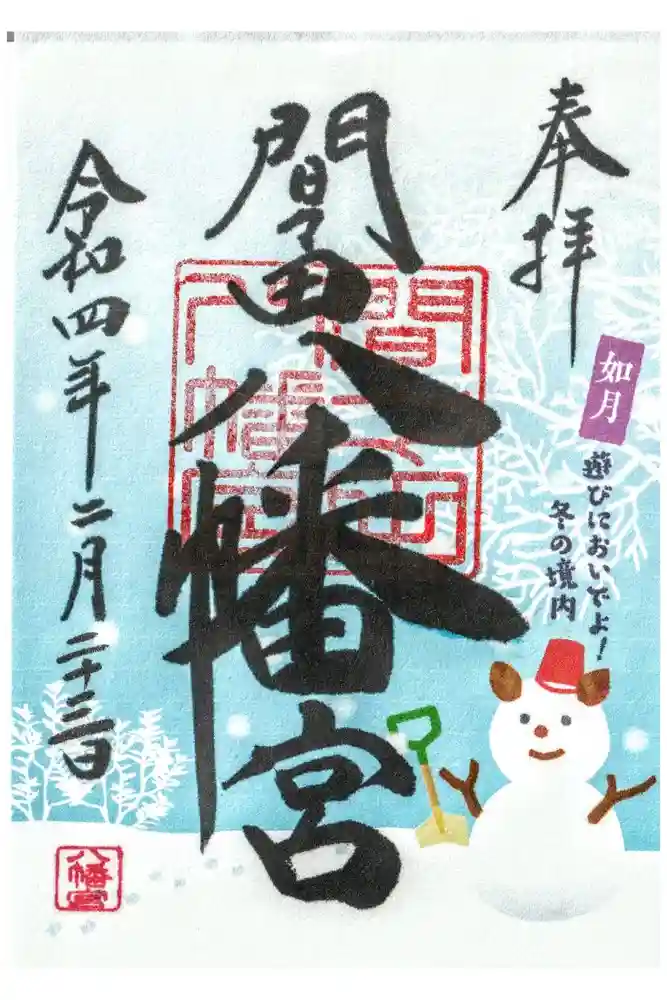 奉拝
如月
遊びにおいでよ!
冬の境内
間々田八幡宮
令和四年二月二十三日
八幡宮